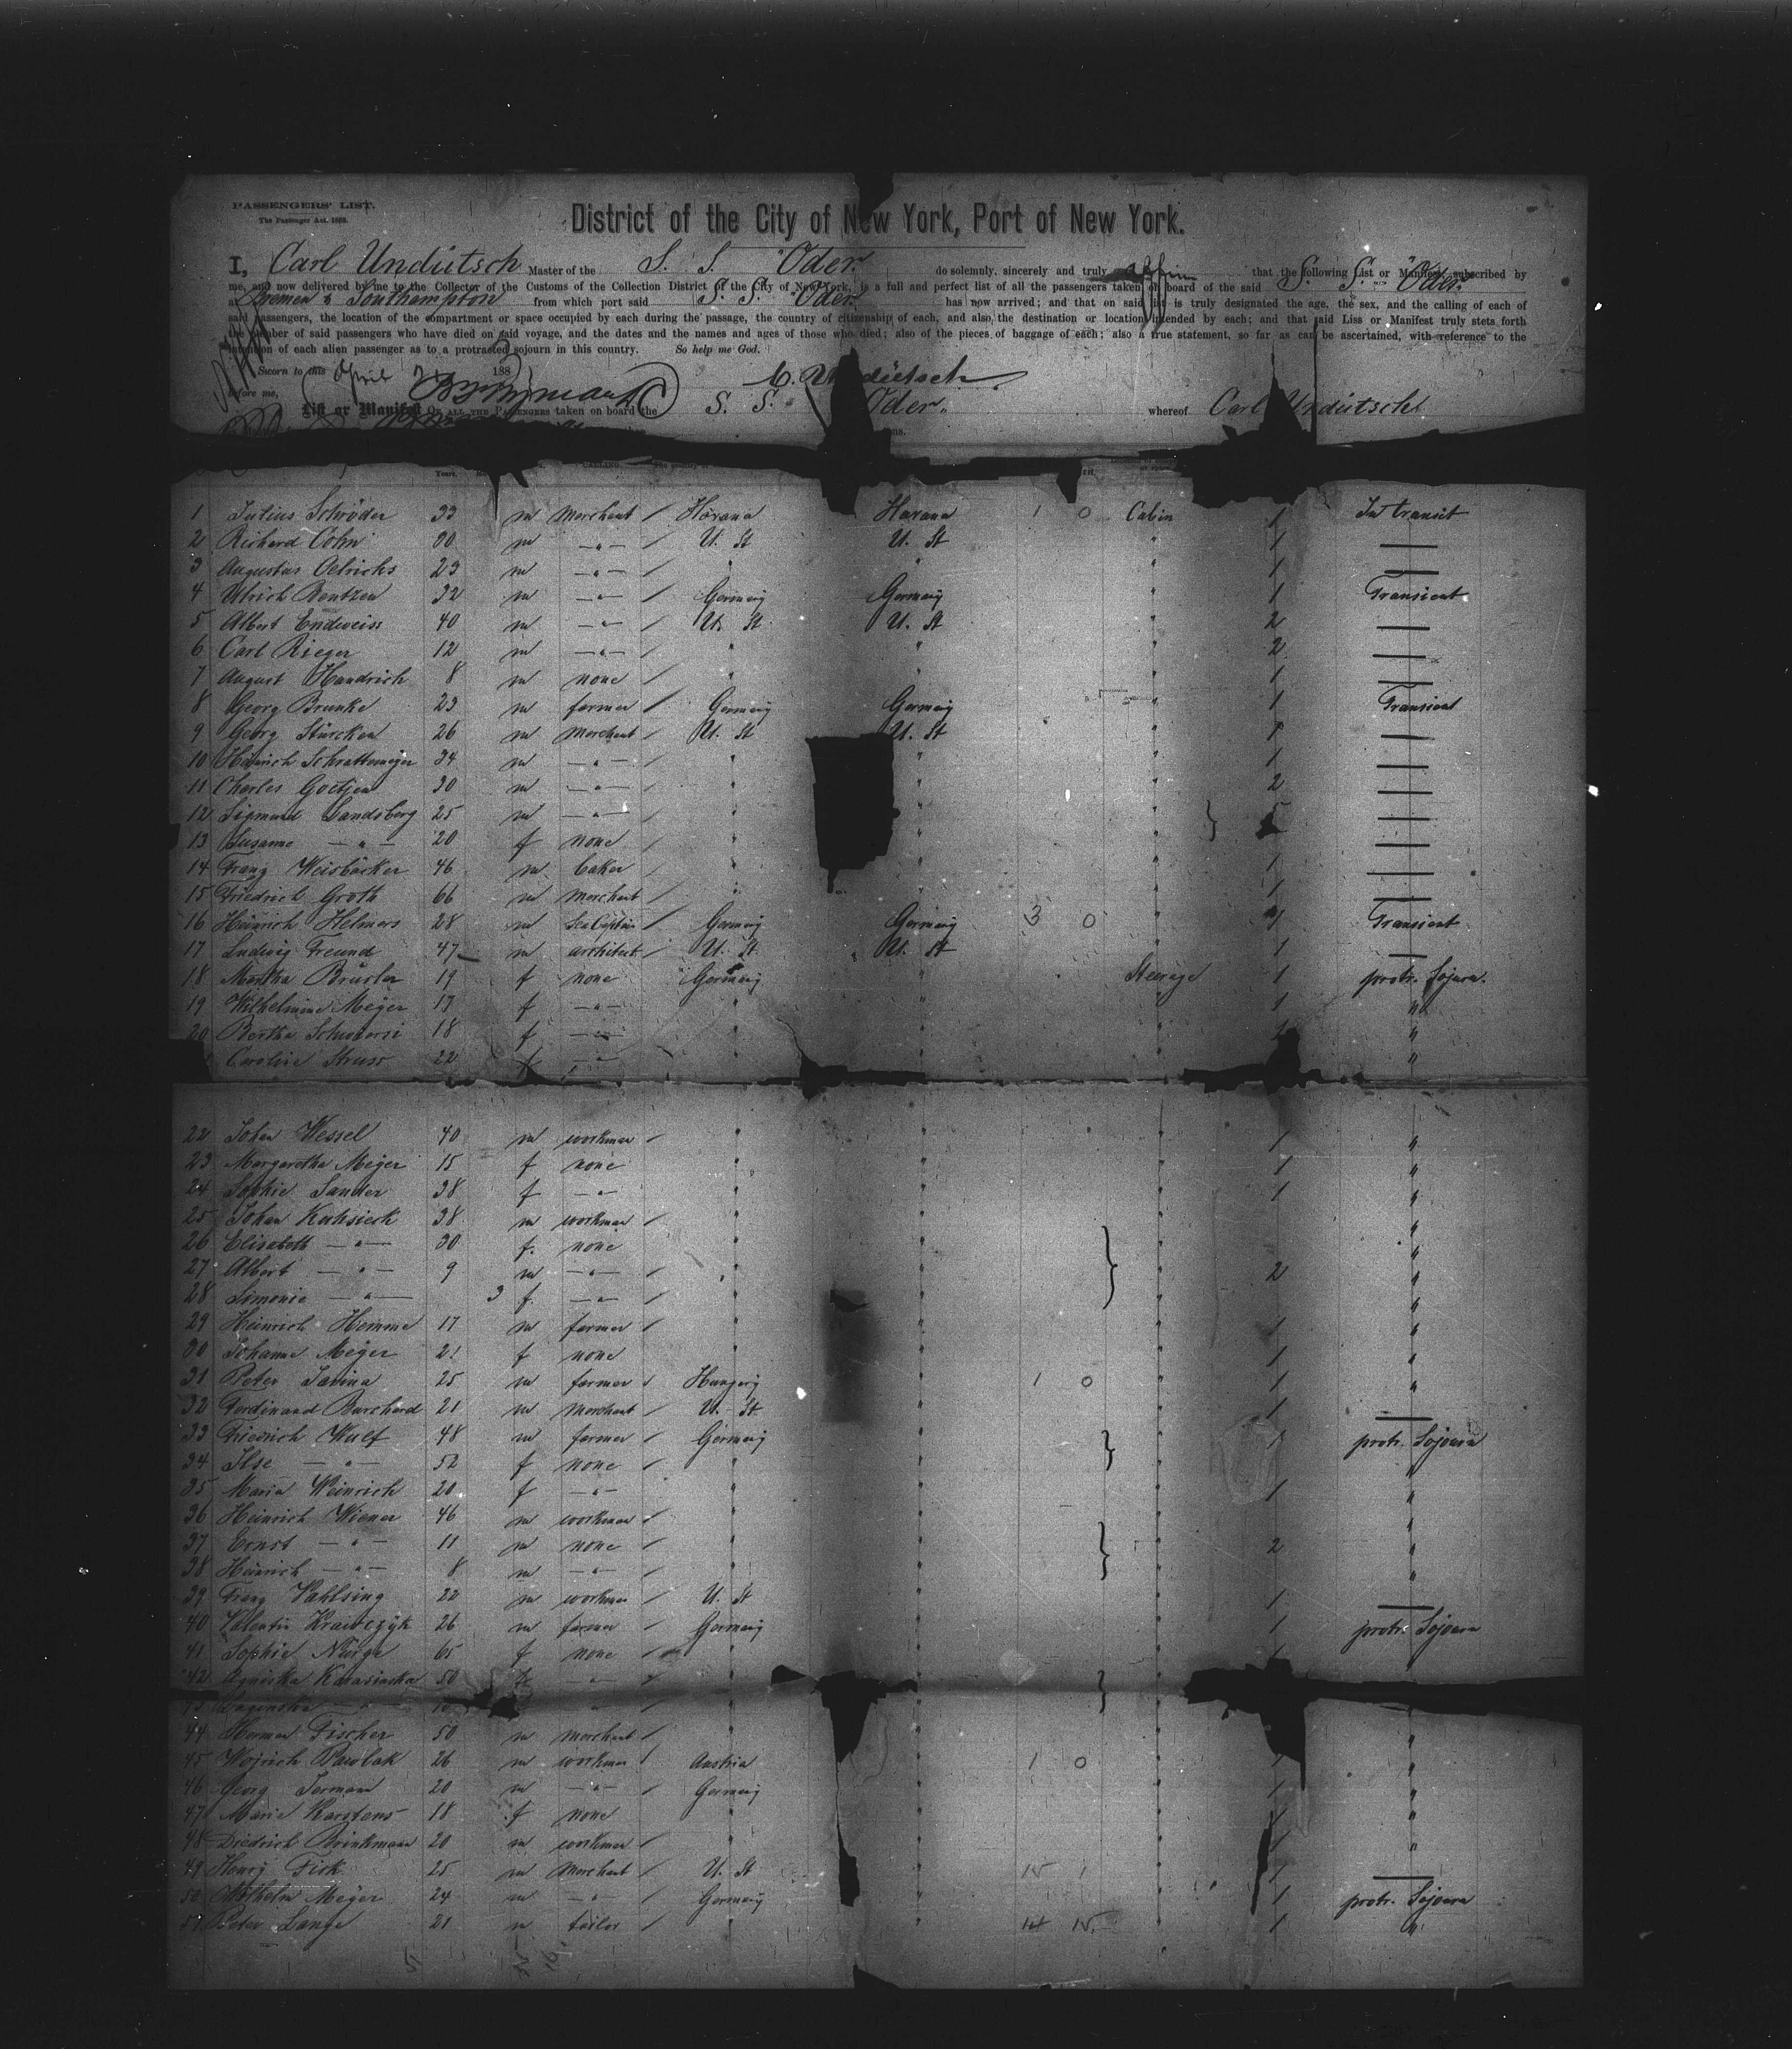 PASSENGERS' LIST.
The Passenger Act, 1882.
District of the City of New York, Port of New York.
I, Carl Undütsch Master of the S. S. "Oder" do solemnly, sincerely and truly affirm that the following List or Manifest, subscribed by
me, and now delivered by me to the Collector of the Customs of the Collection District of the City of New York, is a full and perfect list of all the passengers taken on board of the said S. S. "Oder"
at Bremen & Southampton from which port said S. S. "Oder" has now arrived; and that on said list is truly designated the age, the sex, and the calling of each of
said passengers, the location of the compartment or space occupied by each during the passage, the country of citizenship of each, and also the destination or location intended by each; and that said Liss or Manifest truly stets forth
the number of said passengers who have died on said voyage, and the dates and the names and ages of those who died; also of the pieces of baggage of each; also a true statement, so far as can be ascertained, with reference to the
intention of each alien passenger as to a protracted sojourn in this country. So help me God.
Sworn to this April 188
before me, C. Undütsch
List or Manifest OF ALL THE PASSENGERS taken on board the S. S. "Oder" whereof Carl Undütsch
Years. CALLING.
1 Julius Schröder 33 m Merchant / Havana Havana 1 0 Cabin 1 In transit
2 Richard Cohn 30 m —"— / U. St U. St " 1 —
3 Augustus Oelrichs 23 m —"— / " " " 1 —
4 Ulrich Bentzen 32 m —"— / Germany Germany " 1 Transient
5 Albert Endweiss 40 m —"— / U. St U. St " 2 —
6 Carl Rieger 12 m —"— / " " " 2 —
7 August Handrich 8 m none / " " 1 —
8 Georg Brunke 23 m farmer / Germany Germany " 1 Transient
9 Georg Stürcken 26 m Merchant / U. St U. St " 1 —
10 Heinrich Schrattemeyer 34 m —"— / " " " 1 —
11 Charles Goetjen 30 m —"— / " " 2 —
12 Sigmund Landsberg 25 m —"— / " " " } 5 —
13 Susanne —"— 20 f none / " " " —
14 Franz Weisbäcker 46 m baker / " " " 1 —
15 Friedrich Groth 66 m Merchant / " " " 1 —
16 Heinrich Helmers 28 m Sea Captain Germany Germany 3 0 " 1 Transient
17 Ludwig Freund 47 m architect / U. St U. St " 1 —
18 Martha Brüsler 19 f none / Germany " Steerage 1 protr. Sojourn.
19 Wilhelmine Meyer 17 f —"— " " " 1 "
20 Bertha 18 f —"— " " " "
Caroline Struss 22 f —"— " " " "
22 Johan Wessel 40 m workman / " " " 1 "
23 Margaretha Meyer 15 f none " " " 1 "
24 Sophie Sander 38 f —"— " " " 1 "
25 Johan Kuhsieck 38 m workman / " " " "
26 Elisabeth —"— 30 f. none " " } " "
27 Albert —"— 9 m —"— / " " " 2 "
28 Simonie —"— 3 f. —"— / " " " "
29 Heinrich Hemme 17 m farmer / " " " 1 "
30 Johanne Meyer 21 f none " " " 1 "
31 Peter Janina 25 m farmer / Hungary " 1 0 " 1 "
32 Ferdinand Burchard 21 m Merchant / U. St. " " 1 —
33 Friedrich Wulf 48 m farmer / Germany " } " 1 protr. Sojourn
34 Ilse —"— 52 f none / " " " "
35 Maria Weinrich 20 f —"— " " " 1 "
36 Heinrich Wiener 46 m workman / " " " "
37 Ernst —"— 11 m none / " " } " 2 "
38 Heinrich —"— 8 m —"— / " " " "
39 Franz Vahlsing 22 m workman / U. St " " 1 —
40 Valentin Krawczyk 26 m farmer / Germany " " 1 protr. Sojourn
41 Sophie 65 f none / " " " 1 "
42 Agniska Karasinska 50 f —"— " " } "
44 Herman Fischer 50 m Merchant / " " " "
45 Wojrich Pawlak 26 m workman / Austria " 1 0 " 1 "
46 Georg 20 m —"— / Germany " " 1 "
47 Marie Karstens 18 f none " " " 1 "
48 Diedrich Brinkmann 20 m workman / " " " 1 "
49 Henry Fick 25 m Merchant / U. St " 15 1 " 1 —
50 Wilhelm Meyer 24 m —"— / Germany " " 1 protr. Sojourn
51 Peter Lange 21 m tailor / " " 14 15 " 1 "